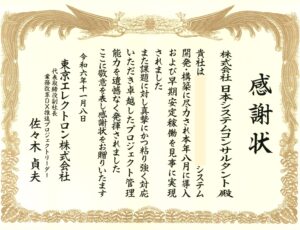 感謝状
株式会社 日本システムコンサルタント 殿
貴社は システム
開発・構築に尽力され本年八月に導入
および早期安定稼働を見事に実現
されました
また課題に対し真摯にかつ粘り強く対応
いただき卓越したプロジェクト管理
能力を遺憾なく発揮されました
ここに敬意を表し感謝状をお贈りいたします
令和六年十一月八日
東京エレクトロン株式会社
代表取締役副社長
業務改革DX推進プロジェクトリーダー
佐々木 貞夫